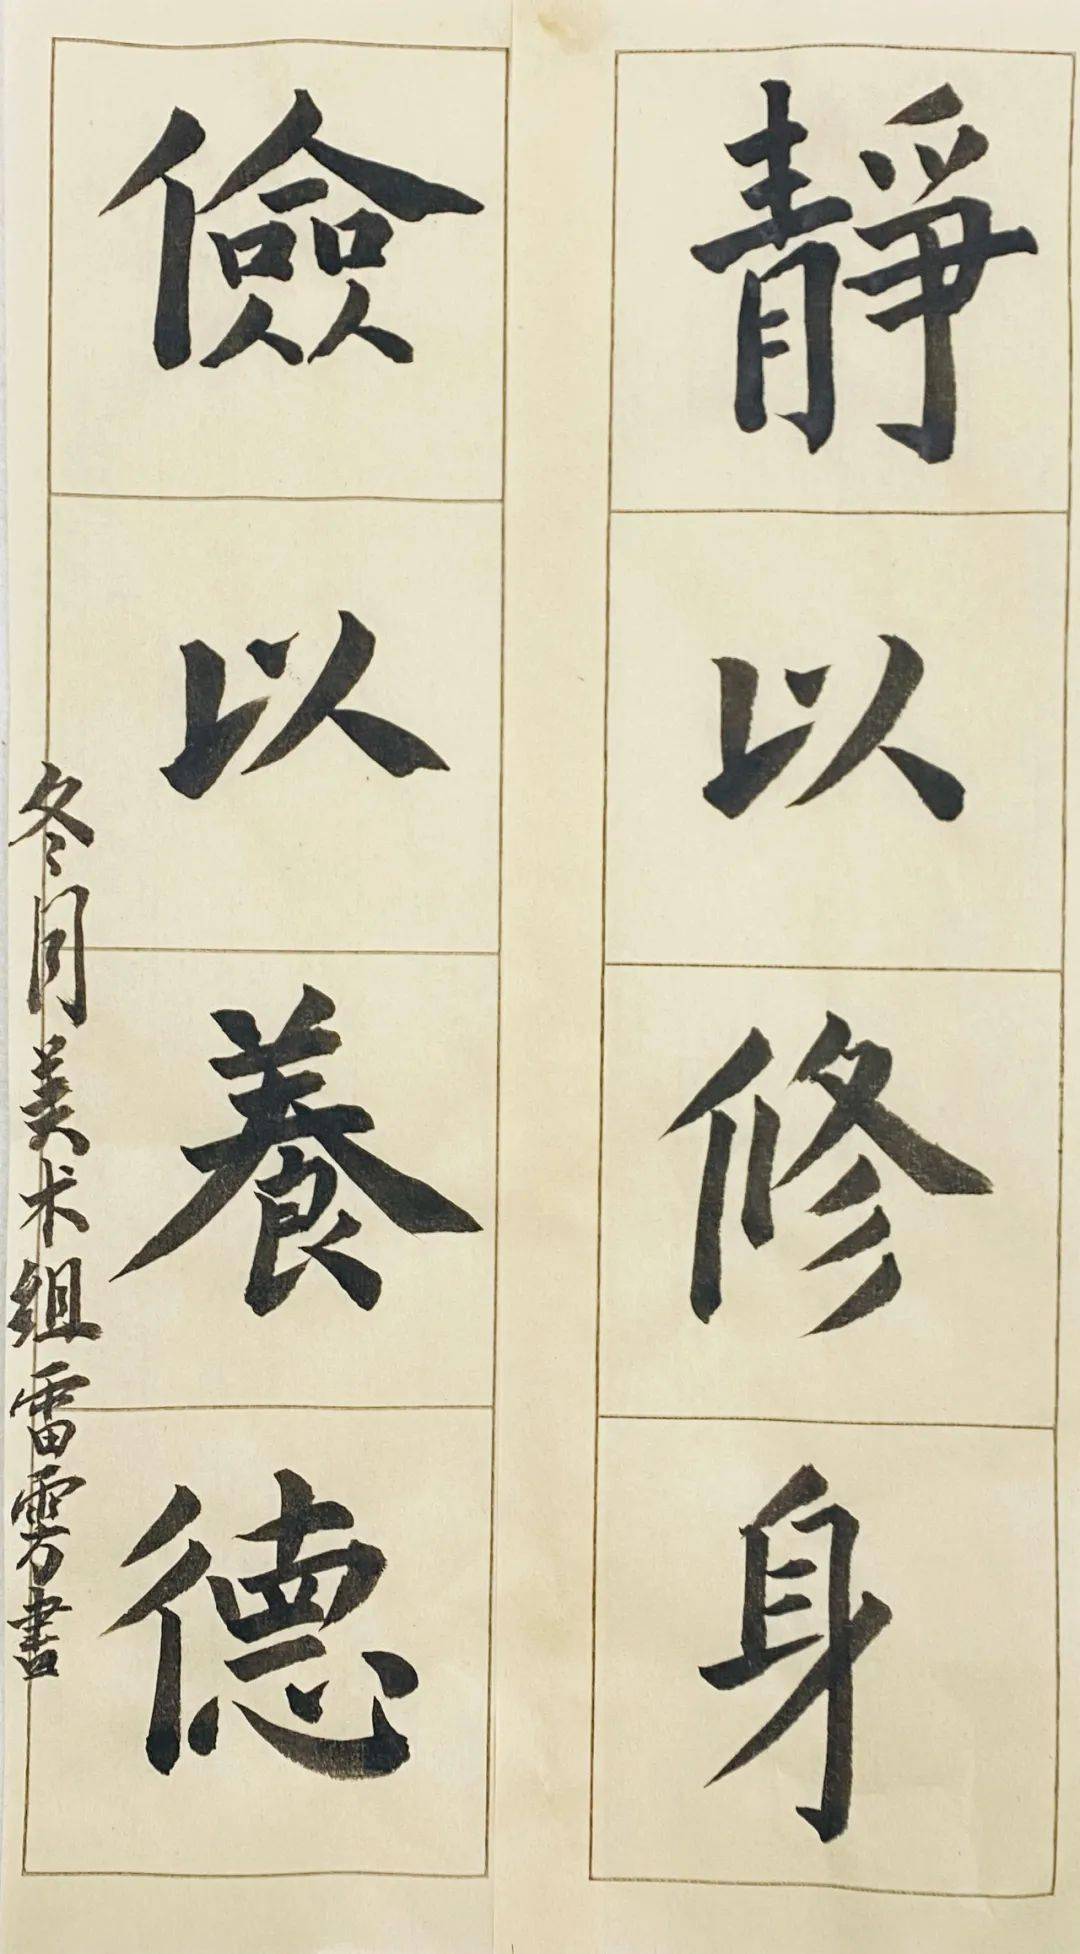 靜以修身
儉以養德
冬月美术組雷雱書